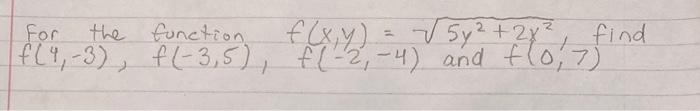 For the function f(x,y) = √5y² + 2x², find
f(4,-3), f(-3,5), f(-2,-4) and f(0,7)